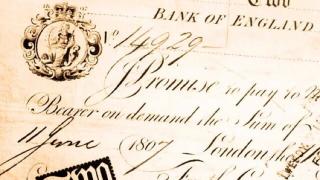 Two
BANK OF ENGLAND
No 14929
I Promise to pay to
Bearer on demand the Sum of
11 June 1807 London the
Two